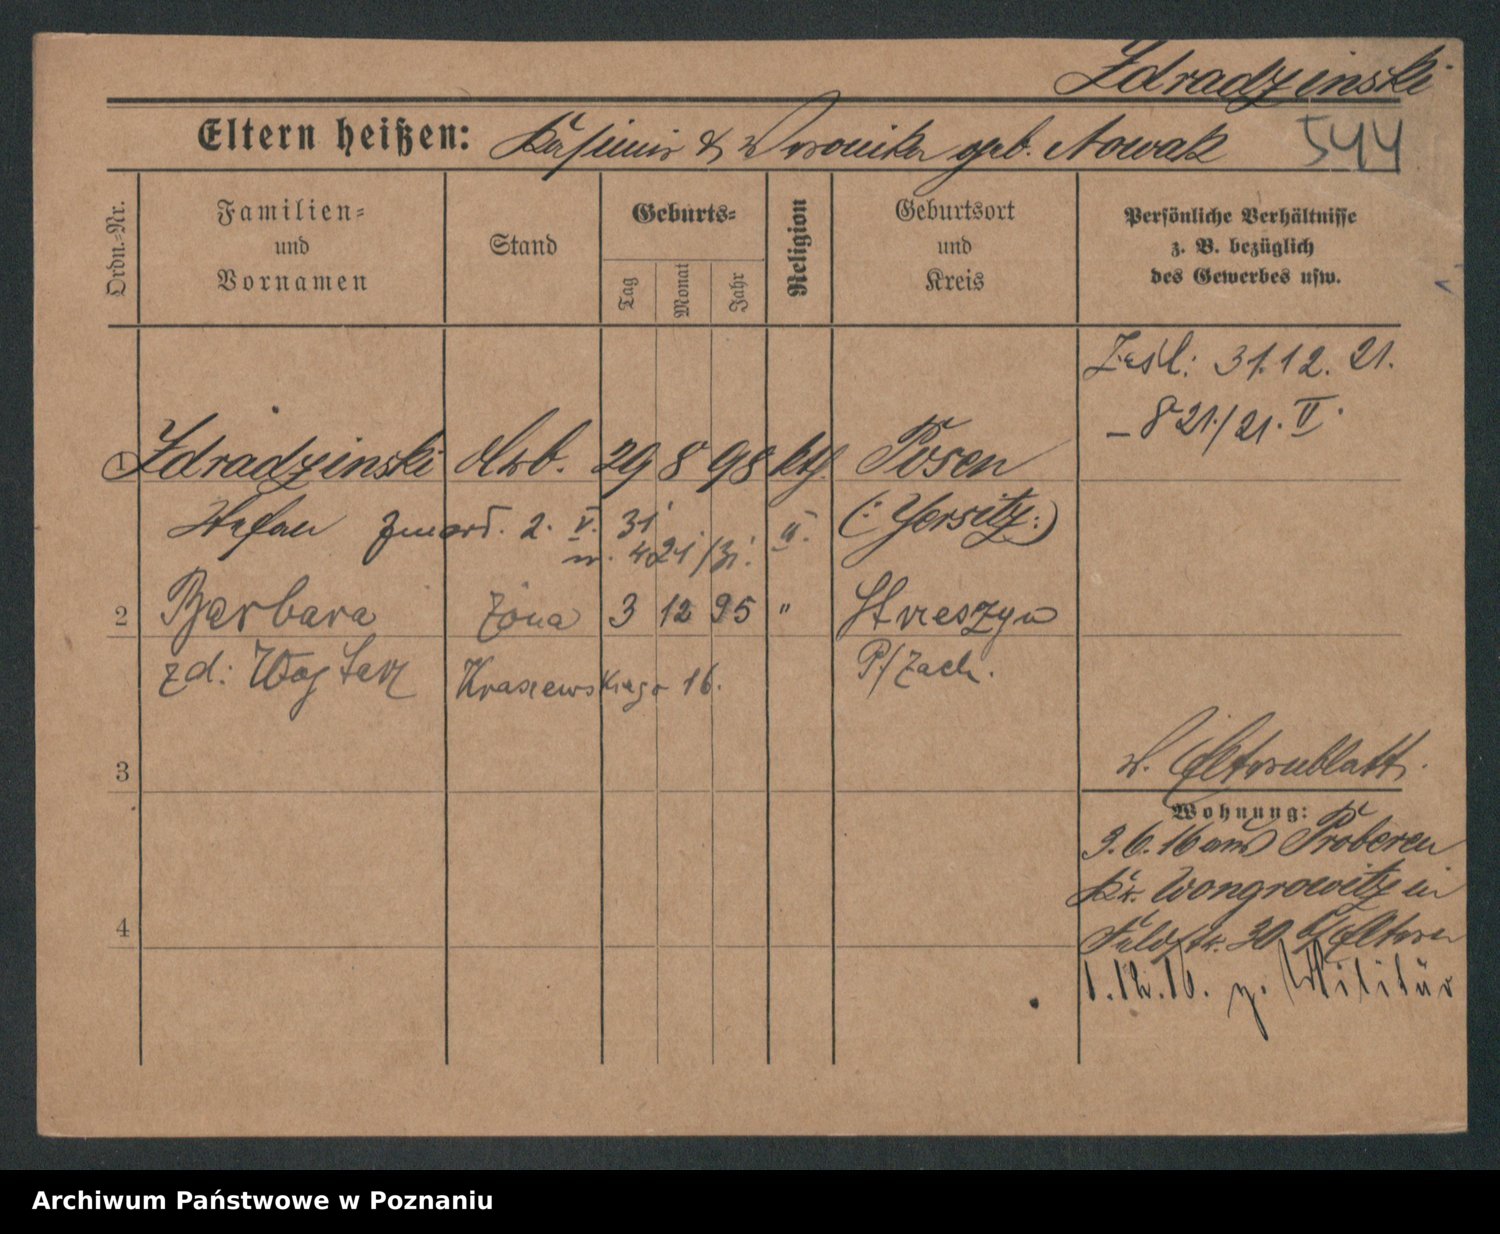 Zdradzinski
Eltern heißen: Kasimir & Veronika geb. Nowak 544
Ordn.-Nr.
Familien-
und
Vornamen
Stand
Geburts-
Tag
Monat
Jahr
Religion
Geburtsort
und
Kreis
Persönliche Verhältnisse
z. B. bezüglich
des Gewerbes usw.
Zesl: 31.12.21.
– 821./21. II.
1 Zdradzinski Arb. 29 8 98 kth. Posen
Stefan zmarł. 2. V. 31 (: Jersitz :)
nr. 421/31. II.
2 Barbara żona 3 12 95 " Strzeszyn
zd: Wojtasz Kraszewskiego 16. P/zach.
3
v. Elternblatt.
Wohnung:
3.6.16 aus Proberen
Kr. Wongrowitz in
Feldstr. 30 b/Eltern
4
1.12.16. z. Militär
Archiwum Państwowe w Poznaniu